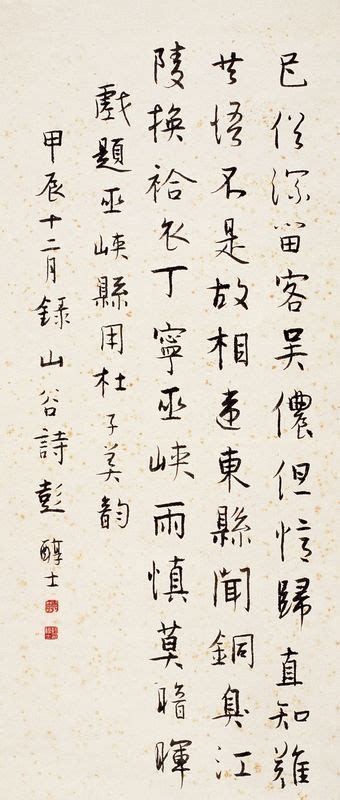 巴俗深留客吳儂但憶歸直知難
共悟不是故相違東縣聞銅臭江
陵換袷衣丁寧巫峽雨慎莫暗暉
戲題巫峽縣用杜子美韵
甲辰十二月錄山谷詩彭醇士